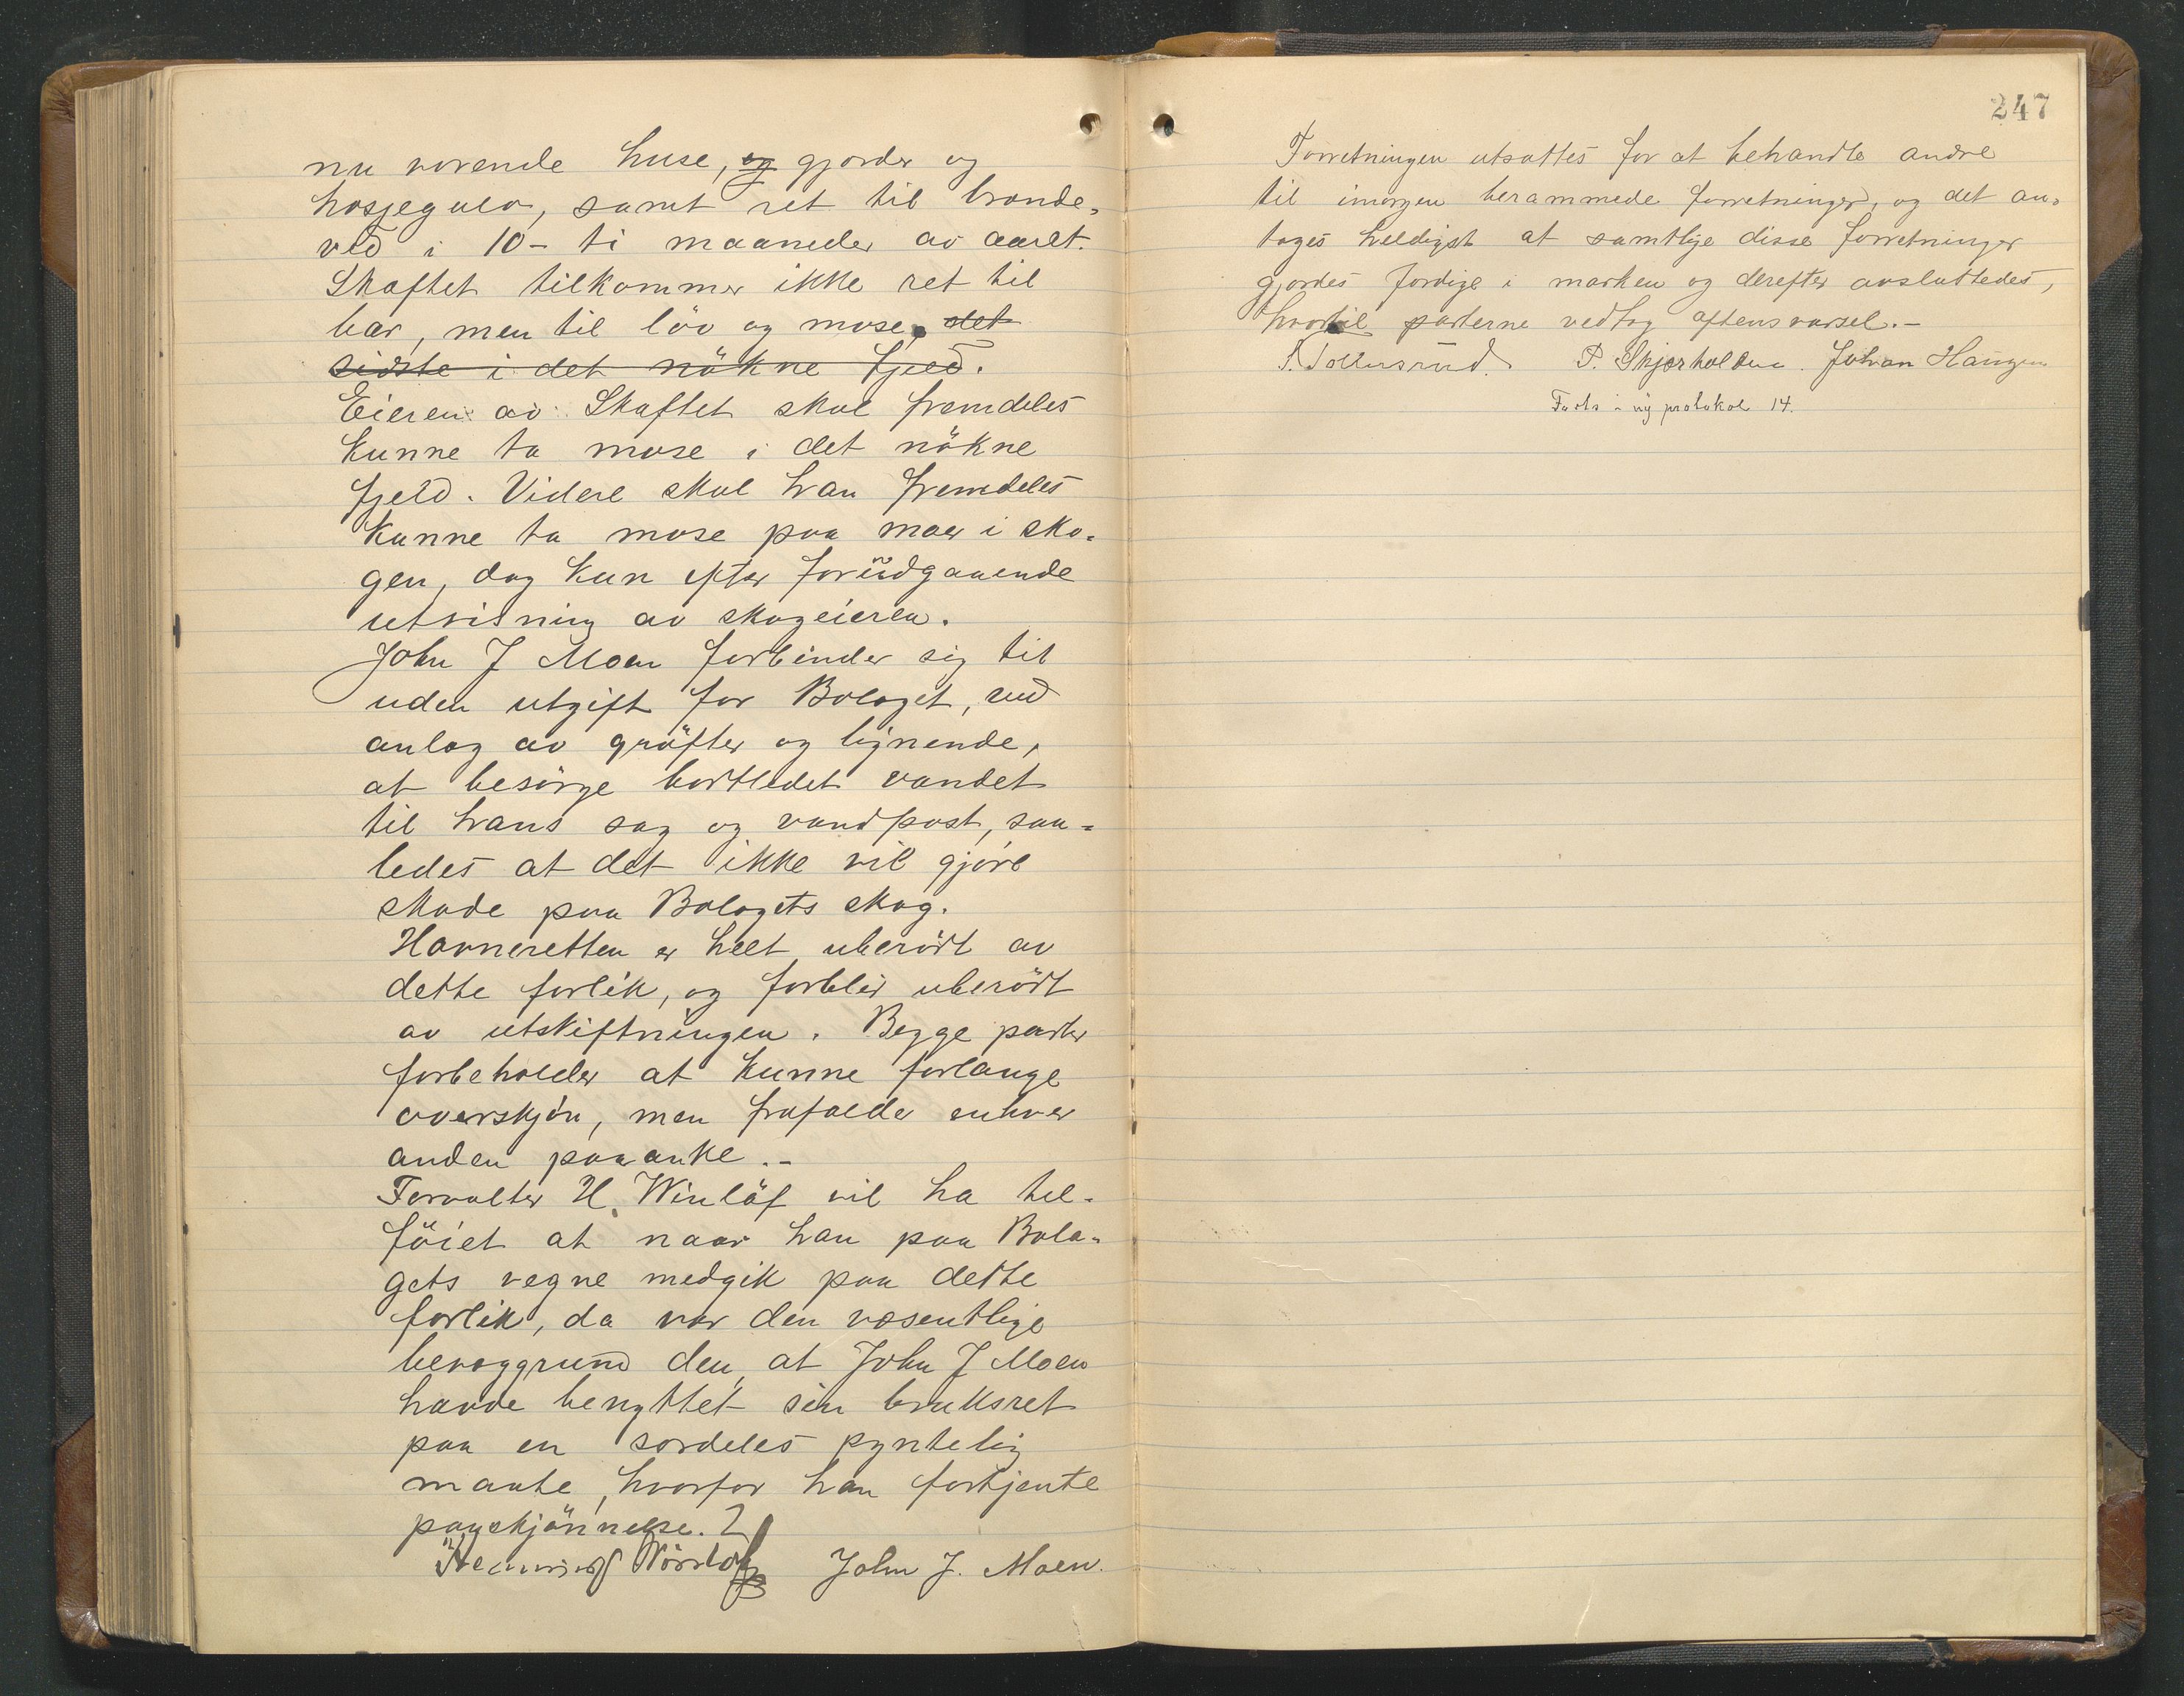 nu vœrende huse, og gjœrder og
hœsjegulv, samt ret til brœnde-
ved i 10 - ti maaneder av aaret.
Skaftet tilkommer ikke ret til
bar, men til löv og mose, det
sidste i det nökne fjeld.
Eieren av Skaftet skal fremdeles
kunne ta mose i det nökne
fjeld. Videre skal han fremdeles
kunne ta mose paa moer i sko-
gen, dog kun efter forudgaaende
utvisning av skogeieren.
John J Moen forbinder sig til
uden utgift for Bolaget, ved
anlœg av gröfter og lignende,
at besörge bortledet vandet
til hans sag og vandpost, saa-
ledes at det ikke vil gjöre
skade paa Bolagets skog.
Havneretten er helt uberört av
dette forlik, og forblir uberört
av utskiftningen. Begge parter
forbeholder at kunne forlange
overskjön, men frafalder enhver
anden paaanke.-
Forvalter H. Winlöf vil ha til-
föiet at naar han paa Bola-
gets vegne medgik paa dette
forlik, da var den vœsentlige
bevœggrund den, at John J Moen
havde benyttet sin bruksret
paa en sœrdeles pyntelig
maate, hvorfor han fortjente
paaskjönnelse.
John J. Moen.
247
Forretningen utsattes for at behandle andre
til imorgen berammede forretninger, og det an-
toges heldigst at samtlige disse forretninger
gjordes fœrdige i marken og derefter avsluttedes,
hvortil parterne vedtog aftensvarsel.-
P. Skjœrholden. Johan Haugen
Forts i ny protokol 14.